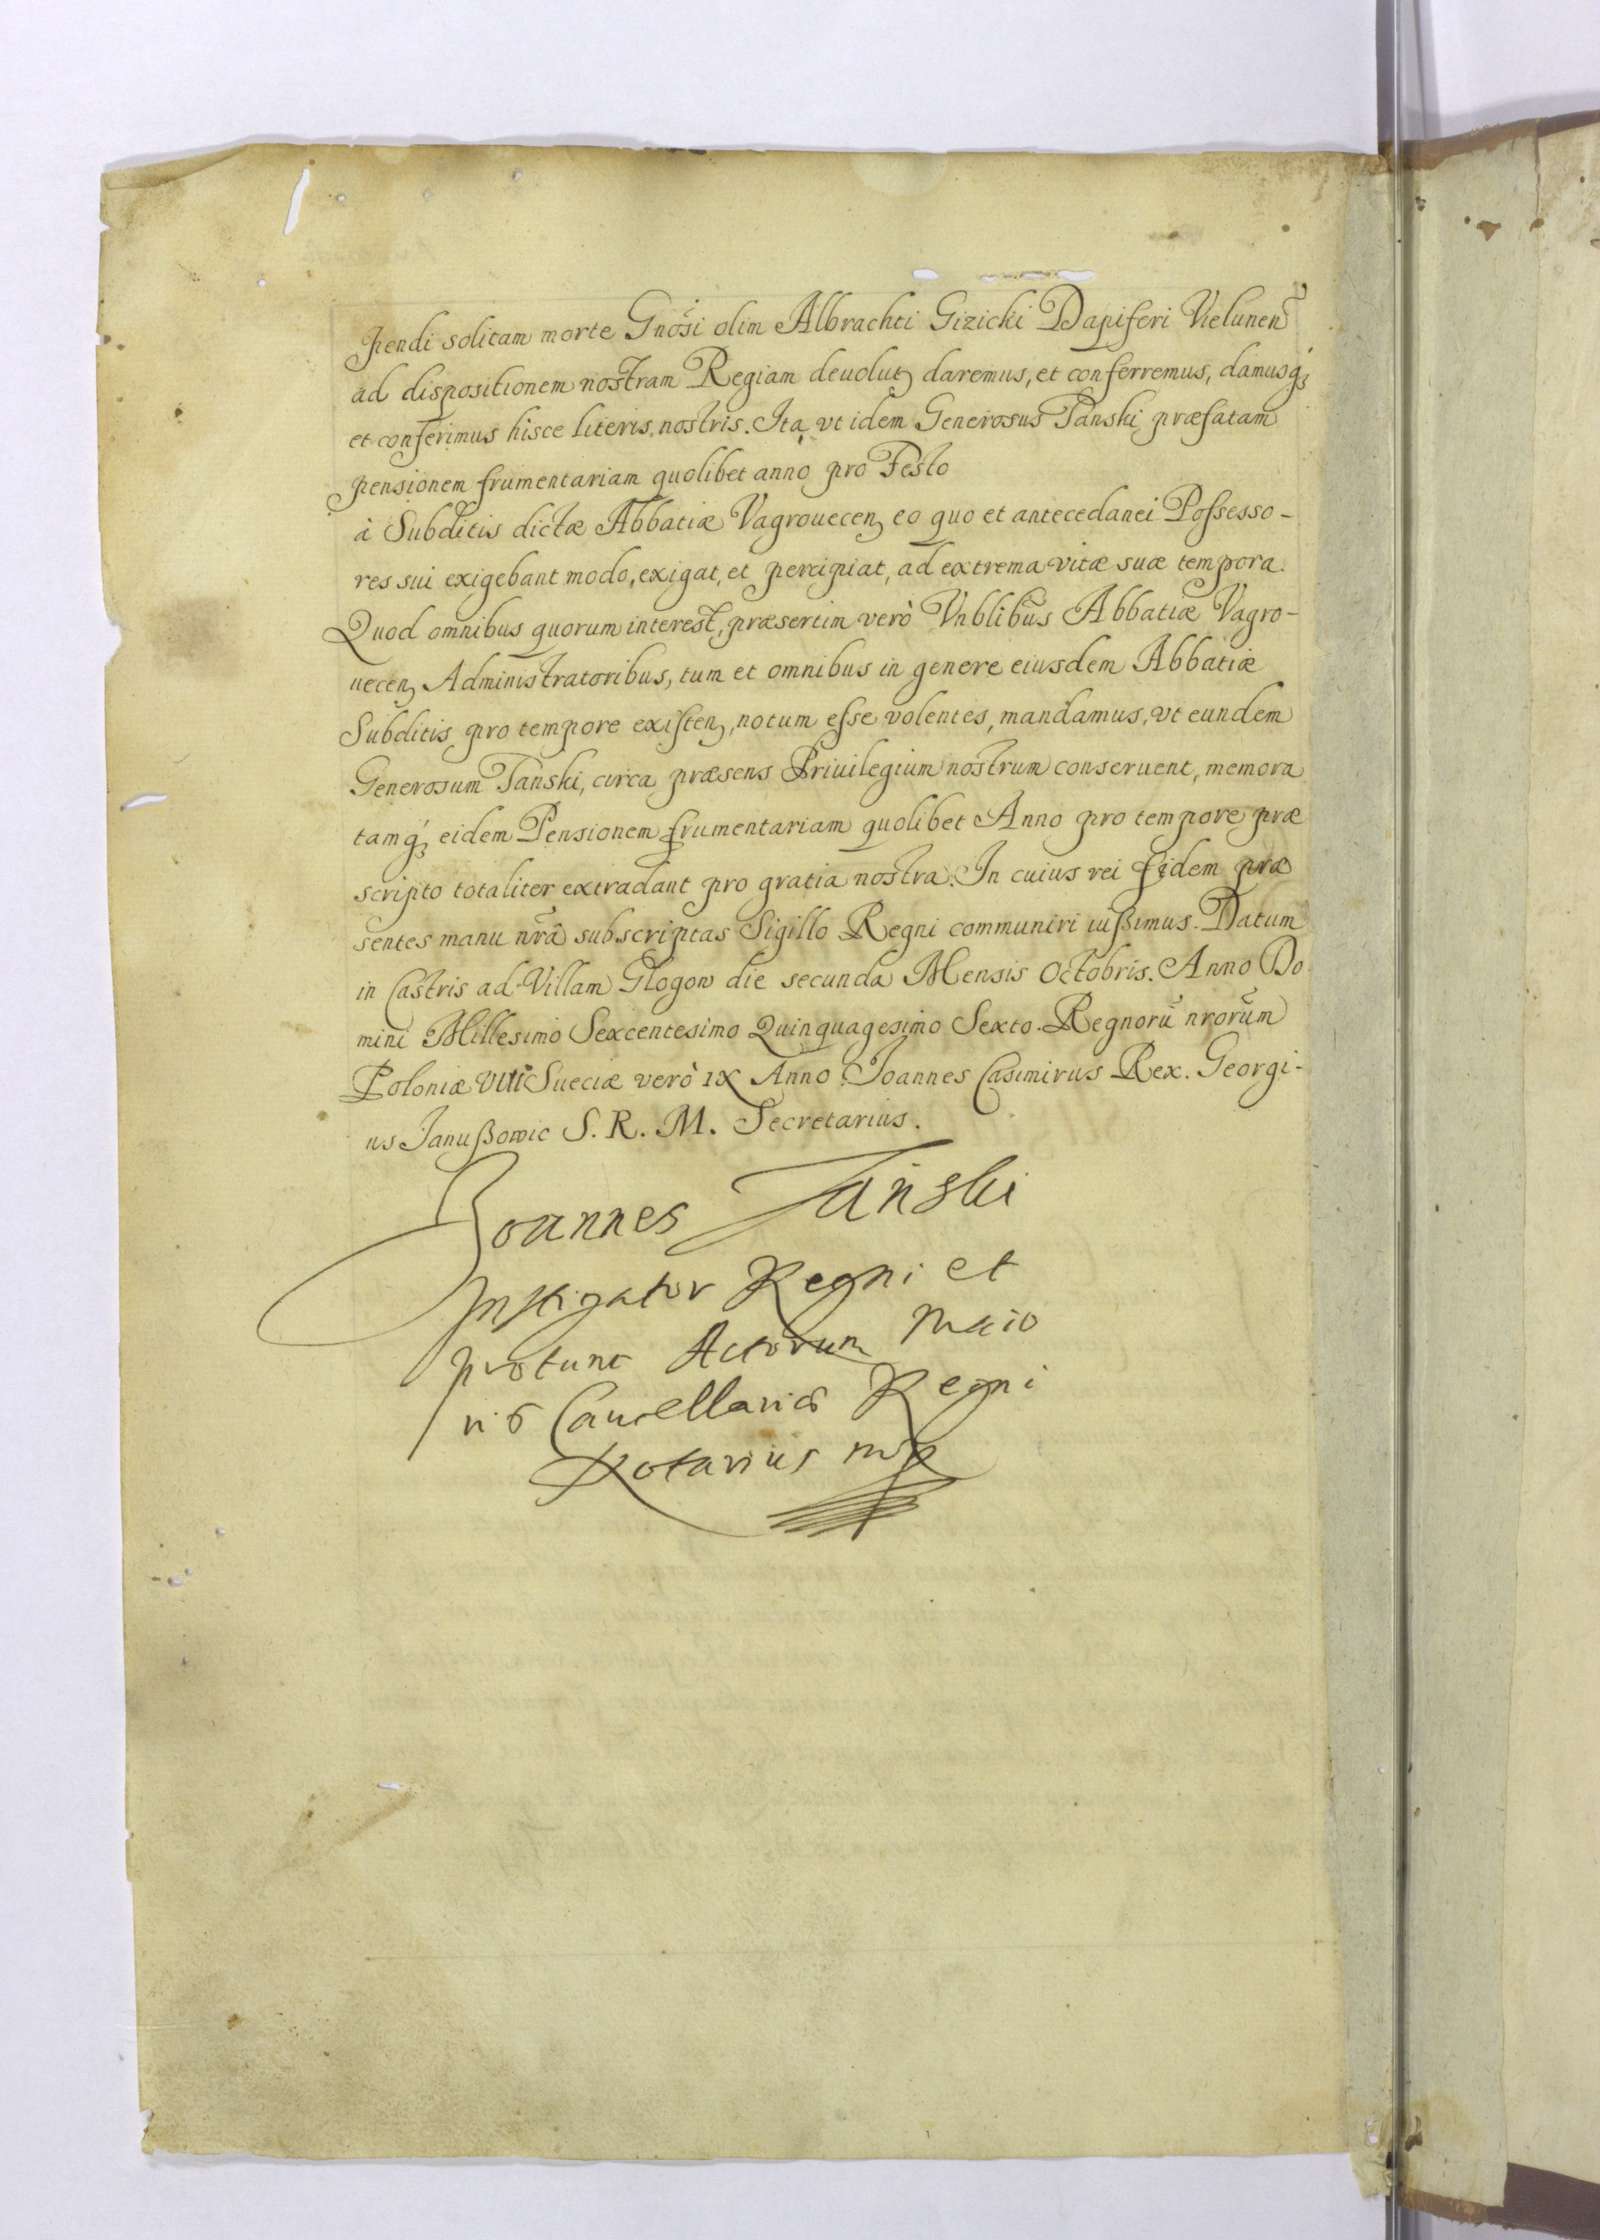 pendi solitam morte Gnosi olim Albrachti Gizicki Dapiferi Vielunen
ad dispositionem nostram Regiam deuolut, daremus, et conferremus, damusq́;
et conferimus hisce literis nostris. Ita vt idem Generosus Tanski præfatam
pensionem frumentariam quolibet anno pro Festo
à Subditis dictæ Abbatiæ Vagrouecen, eo quo et antecedanei Possesso-
res sui exigebant modo, exigat, et percipiat, ad extrema vitæ suæ tempora.
Quod omnibus quorum interest, præsertim verò Vnblibus Abbatiæ Vagro-
uecen, Administratoribus, tum et omnibus in genere eiusdem Abbatiæ
Subditis pro tempore existen, notum esse volentes, mandamus, vt eundem
Generosum Tanski, circa præsens Priuilegium nostrum conseruent, memora
tamq́; eidem Pensionem frumentariam quolibet Anno pro tempore præ
scripto totaliter extradant pro gratia nostra. In cuius rei fidem præ
sentes manu nrã subscriptas Sigillo Regni communiri iußimus. Datum
in Castris ad Villam Glogow die secunda Mensis Octobris. Anno Do
mini Millesimo Sexcentesimo Quinquagesimo Sexto. Regnorũ nrorũm
Poloniæ VIII Sueciæ verò IX Anno. Joannes Casimirus Rex. Georgi-
us Janußowic S. R. M. Secretarius.
Joannes Tański
Instigator Regni et
protunc Actorum Maio
ris Cancellariæ Regni
Notarius mp